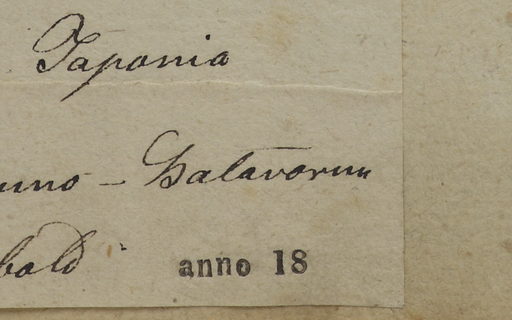 Japonia
uno – Batavorum
bold
anno 18